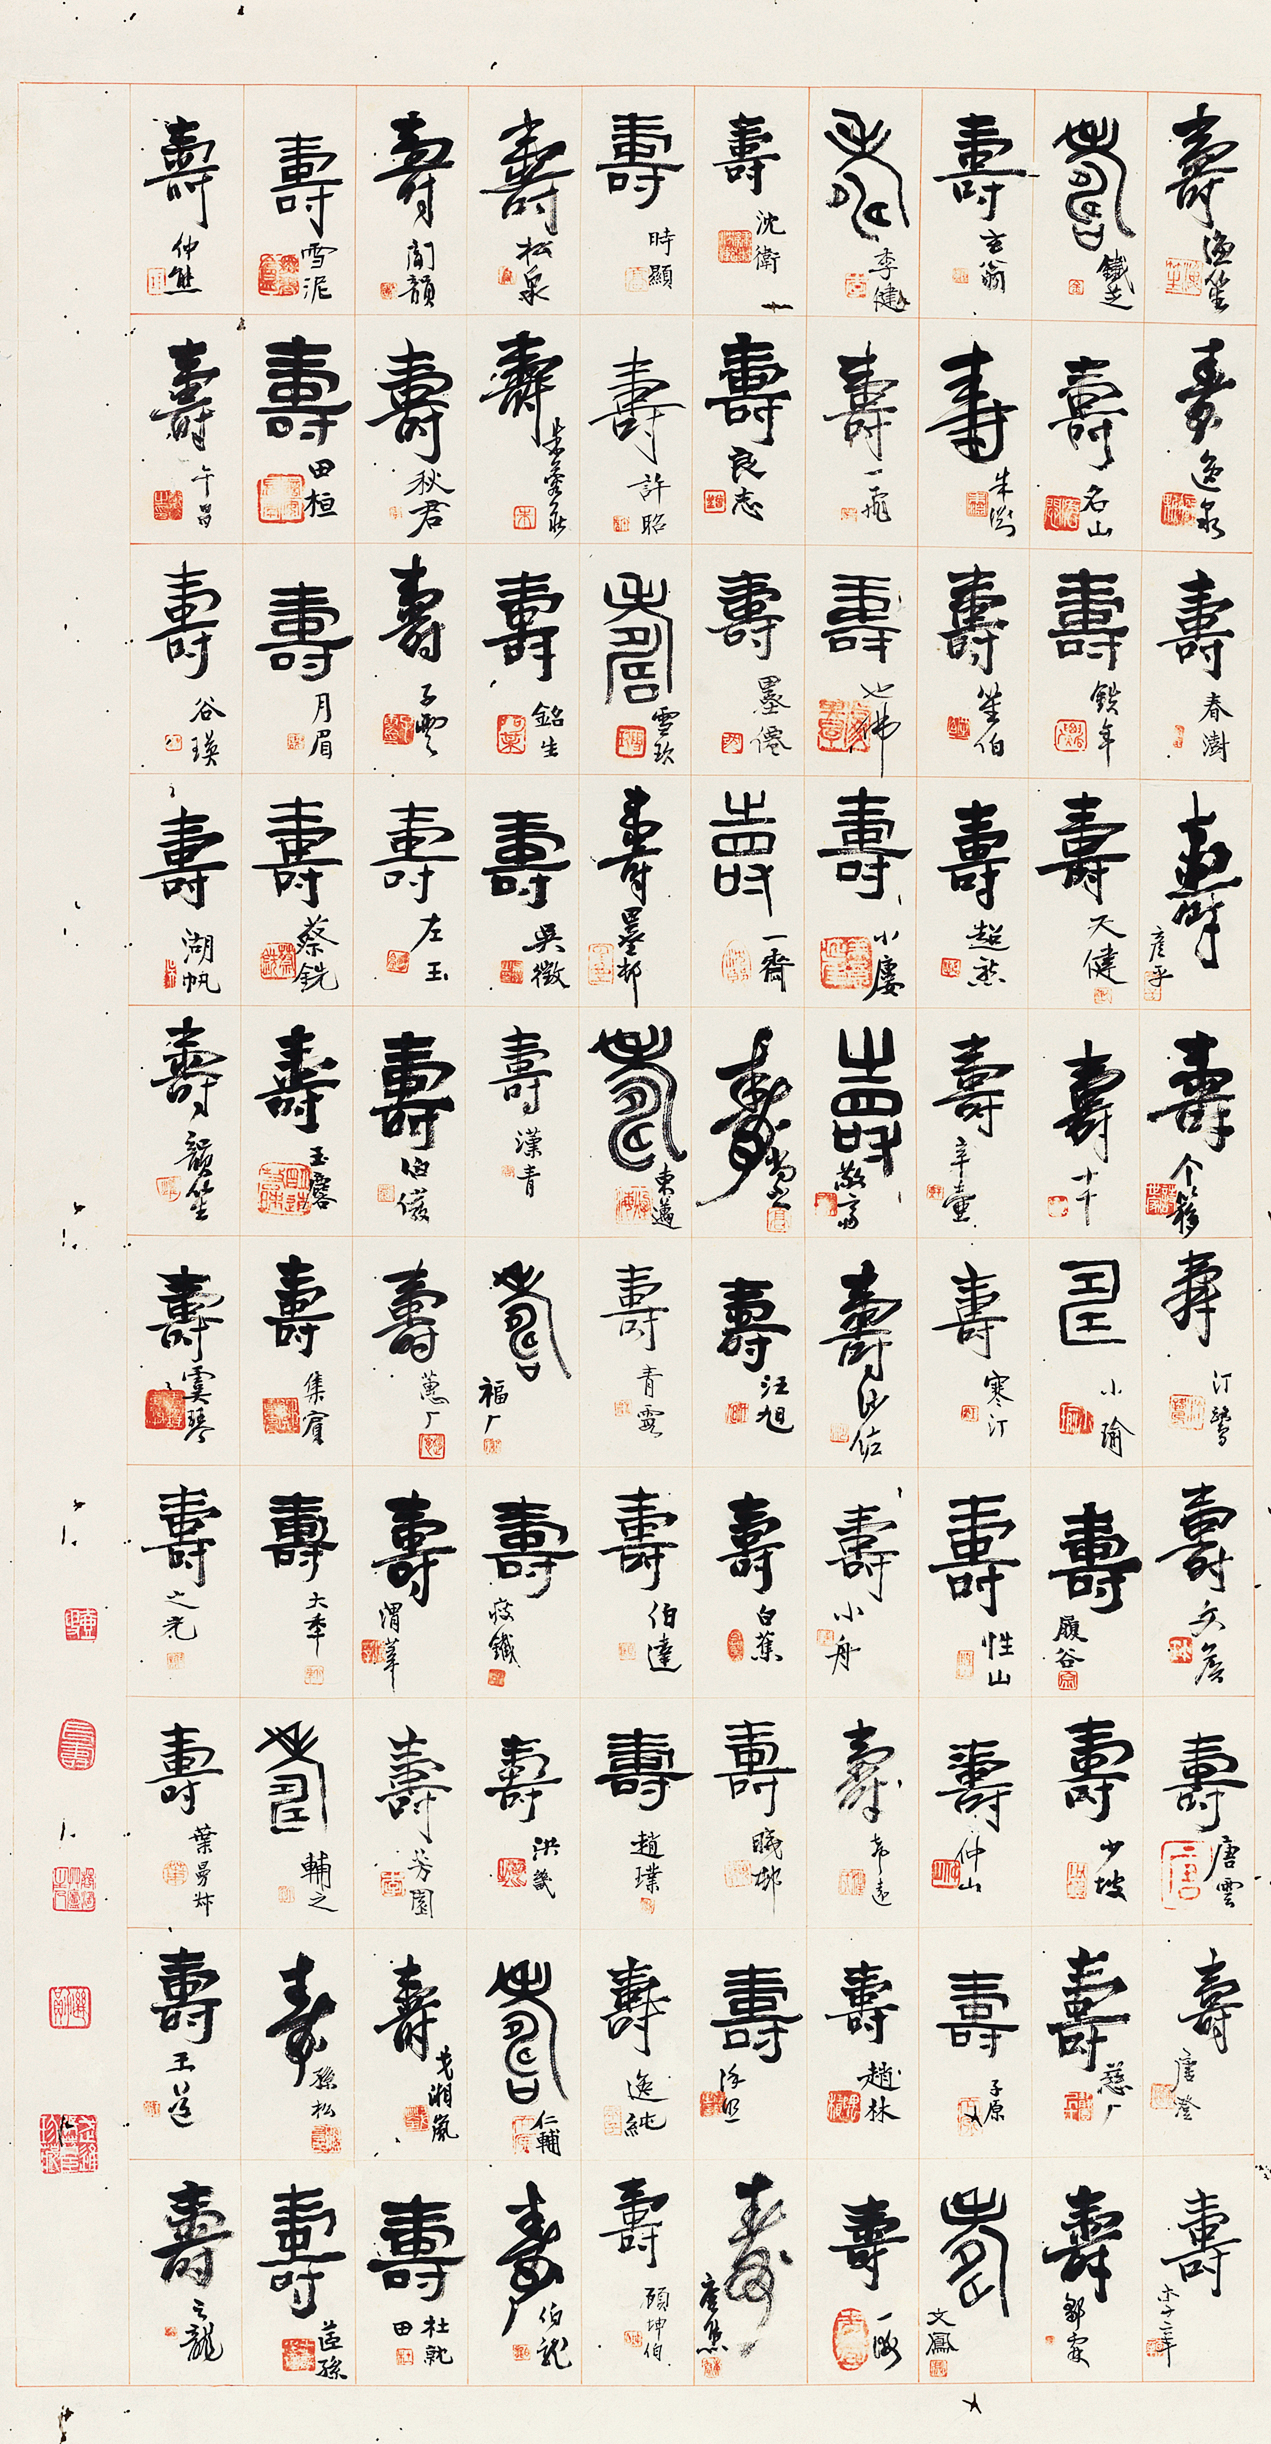 壽 笙
壽 逸泉
壽 春澍
壽 彦平
壽 个簃
壽 汀鷺
壽 文
壽 唐雲
壽 唐澄
壽
壽 鐵
壽 名山
壽 銕年
壽 天健
壽 十千
壽 小瑜
壽 履谷
壽 少坡
壽 慈厂
壽 鄒霖
壽 玄翁
壽 朱澍
壽 笙伯
壽 超然
壽 辛壺
壽 寒汀
壽 性山
壽 仲山
壽 子原
壽 文鳳
壽 李健
壽 一飛
壽 也佛
壽 小廔
壽 敬齋
壽
壽 小舟
壽 希遠
壽 趙林
壽 一
壽 沈衛
壽 良志
壽 墨僊
壽 一齋
壽
壽 汪旭
壽 白蕉
壽 曉邨
壽
壽
壽 時顯
壽 許昭
壽 雪玖
壽 墨邨
壽 東邁
壽 青霞
壽 伯達
壽 趙璞
壽 逸純
壽 顧坤伯
壽 松泉
壽 朱蓉莊
壽 銘生
壽 吳徵
壽 漢青
壽 福厂
壽 瘦鐵
壽 洪畿
壽 仁輔
壽 伯龍
壽 閬韻
壽 秋君
壽 子雲
壽 左玉
壽 伯儀
壽 蕙厂
壽 渭莘
壽 芳園
壽 戈湘嵐
壽 杜就田
壽 雪泥
壽 田桓
壽 月眉
壽 蔡銑
壽 玉麐
壽 集賓
壽 大年
壽 輔之
壽 孫松
壽 茝孫
壽 仲熊
壽 午昌
壽 谷瑛
壽 湖帆
壽 韻笙
壽 虞琴
壽 之光
壽 葉曼叔
壽 王
壽 云龍